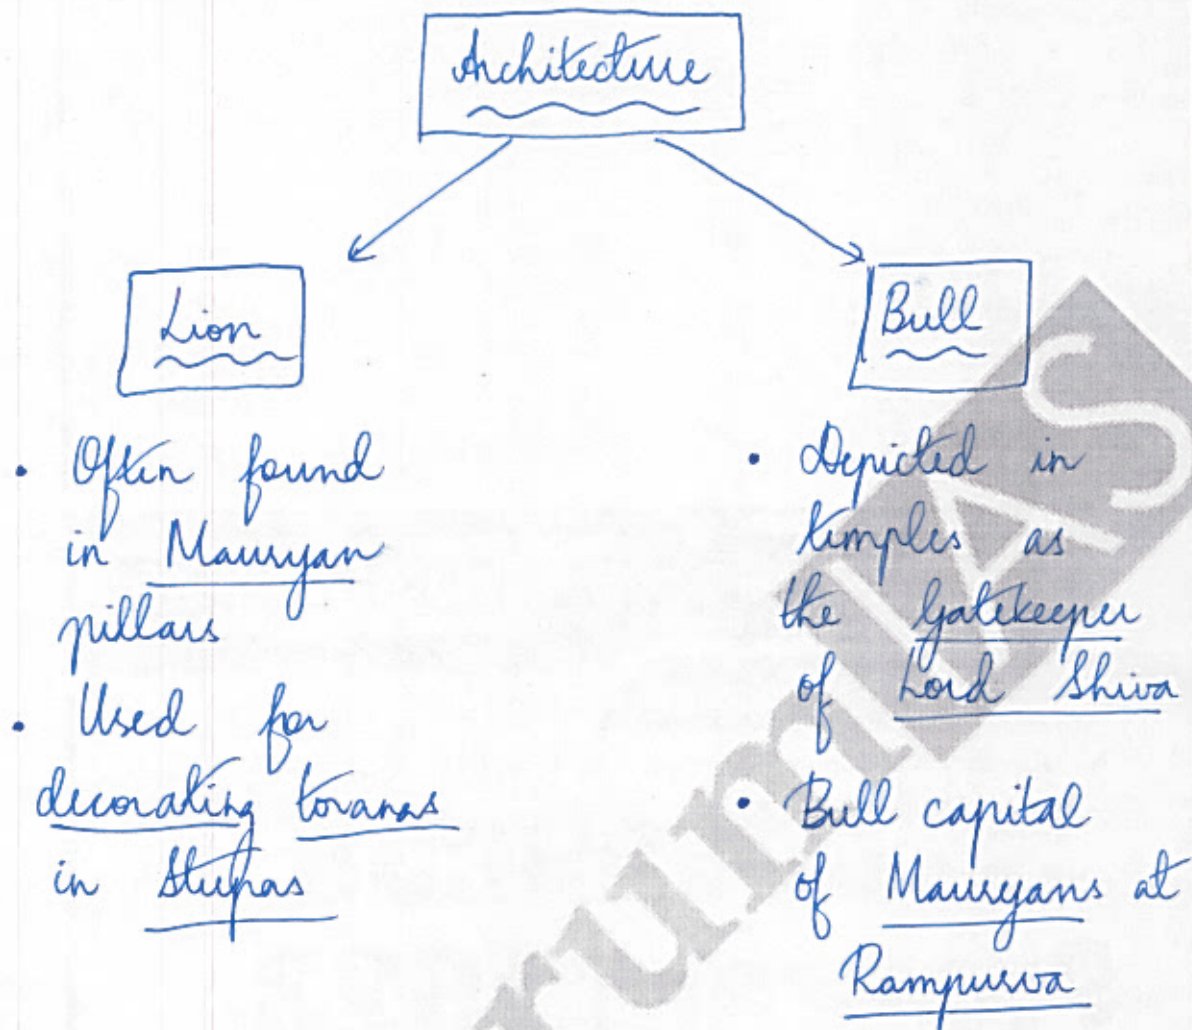 Architecture
Lion
Often found
in Mauryan
pillars
Used for
decorating toranas
in Stupas
Bull
Depicted in
temples as
the Gatekeeper
of Lord Shiva
Bull capital
of Mauryans at
Rampurva
rumIAS